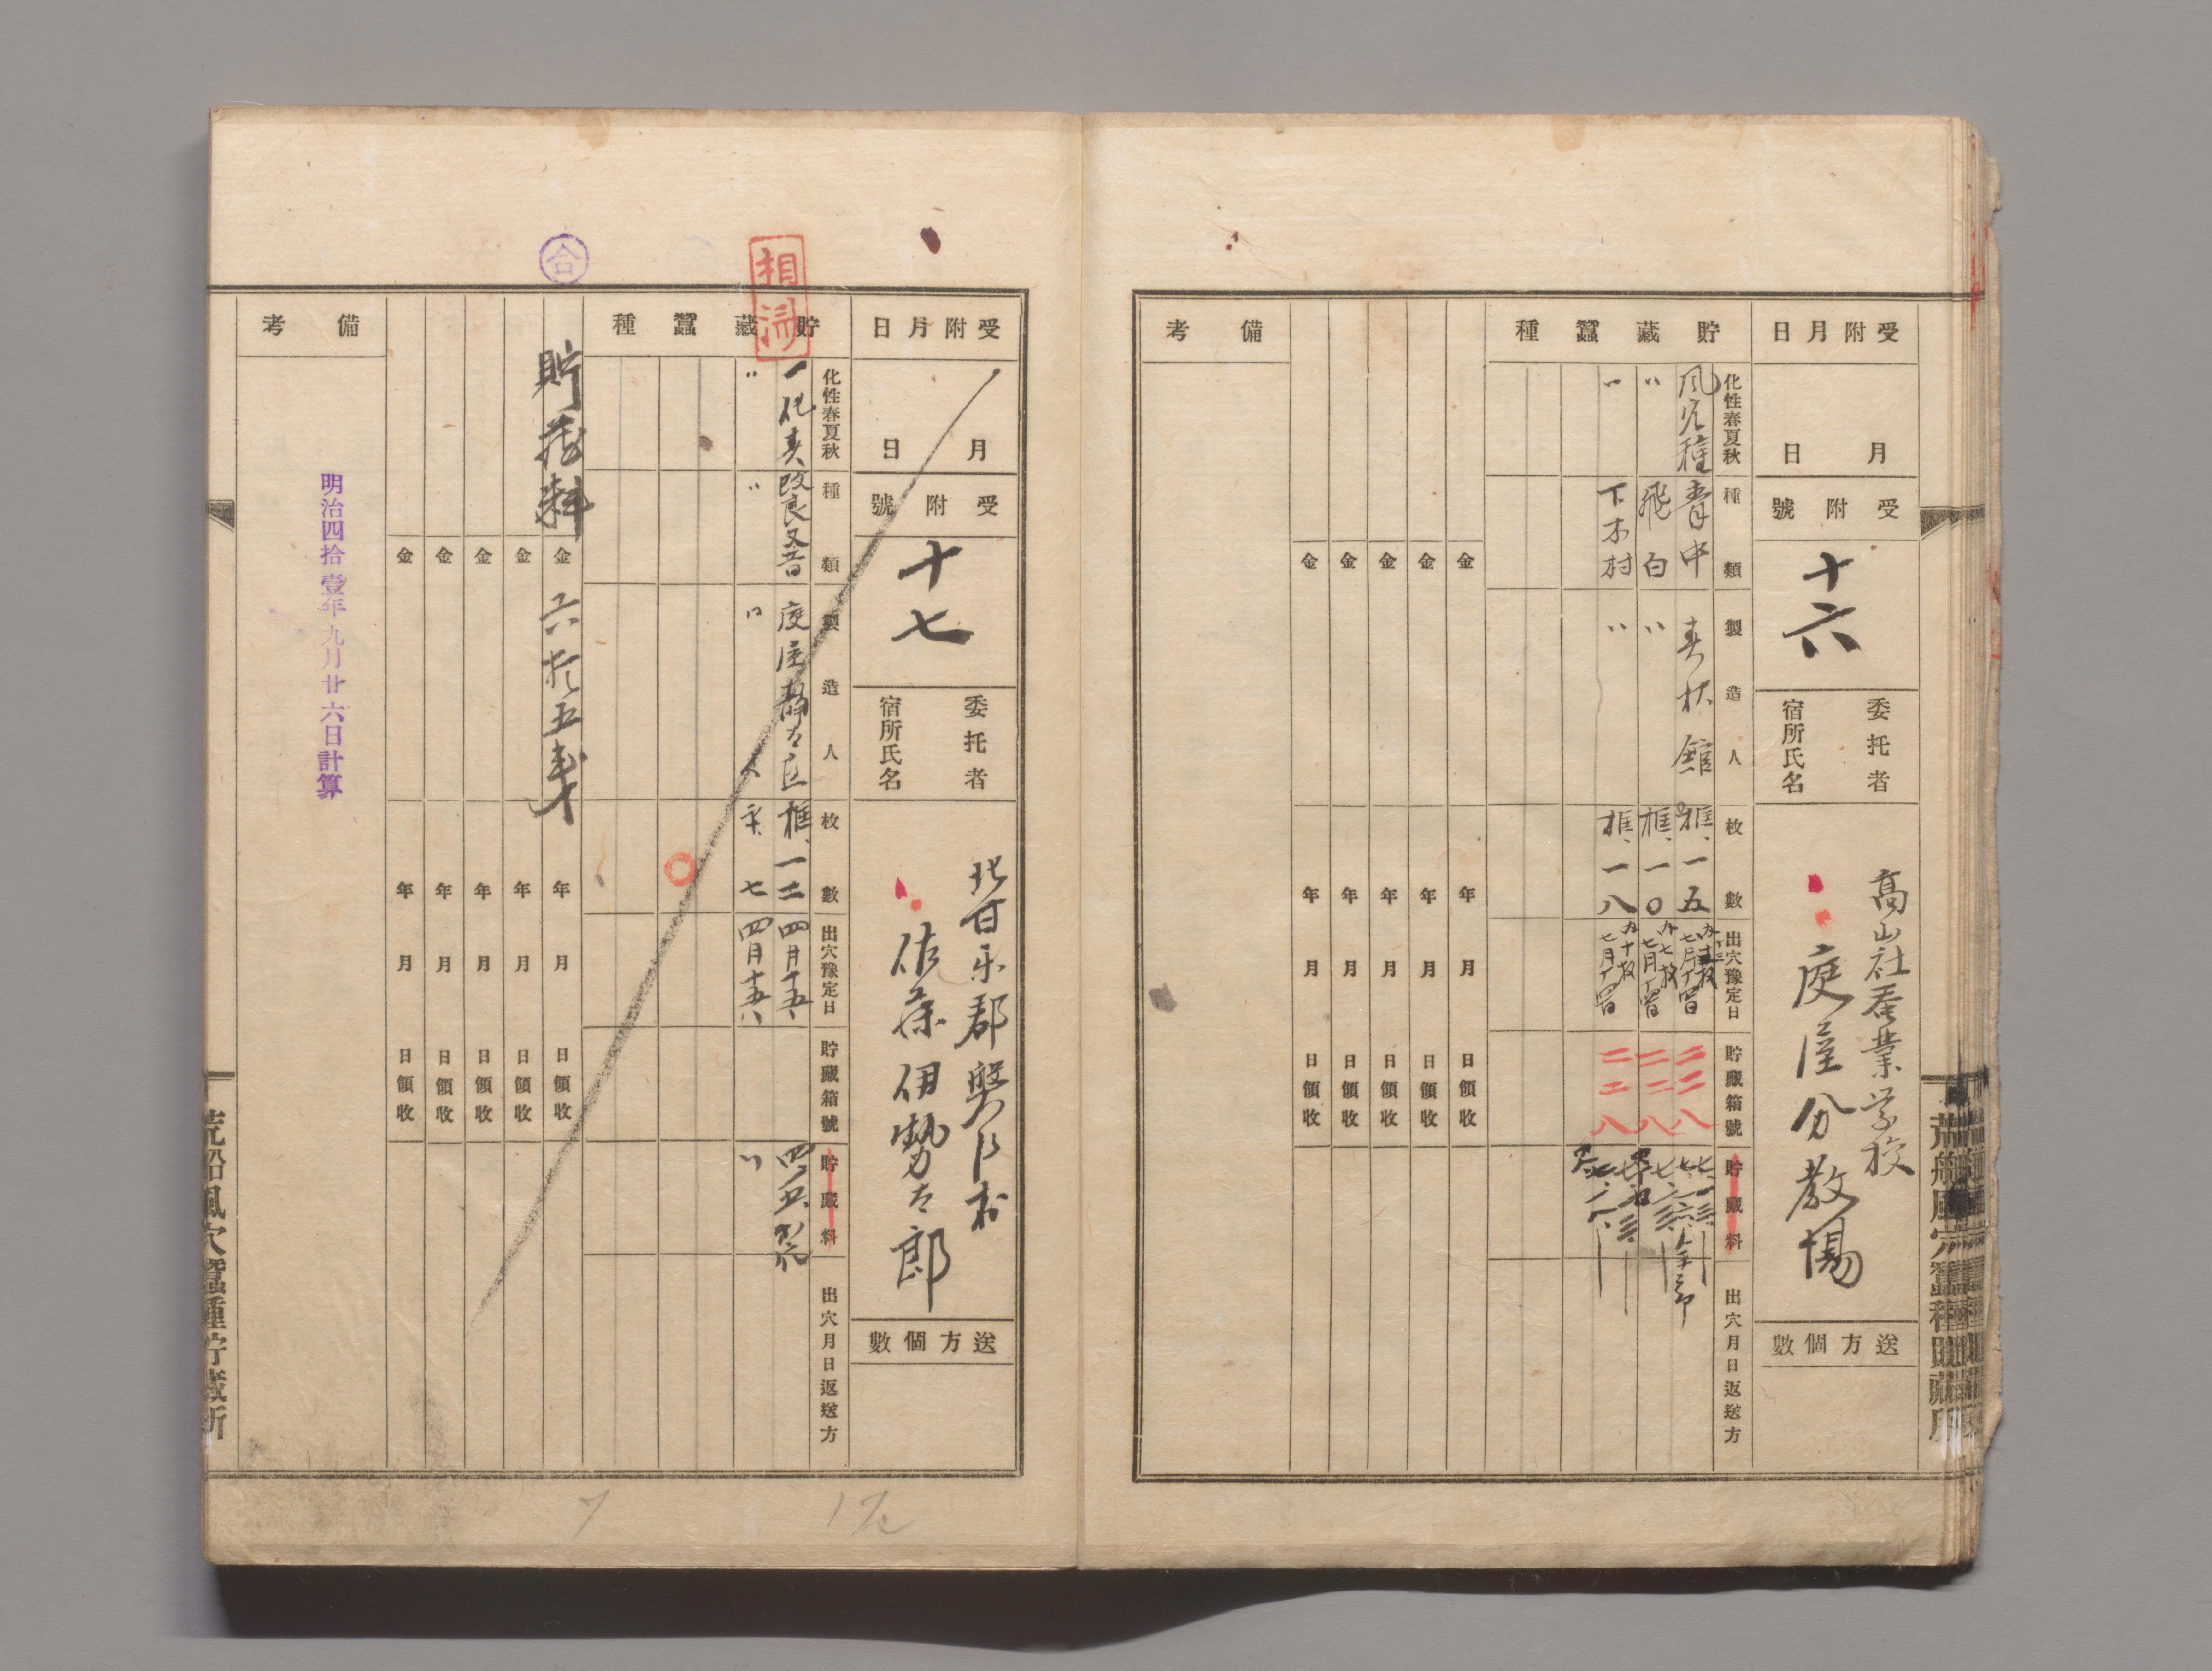 受附月日
月
日
受附號
十六
委托者
宿所氏名
高山社蚕業学校
庭屋分教場
送方個數
貯藏蠶種
化性春夏秋
種類
製造人
枚數
出穴豫定日
貯藏箱號
貯藏料
出穴月日返送方
風穴種
青中
春秋館
框、一五
七月十四日
二二八
〃
飛白
〃
框、一〇
七月十四日
二二八
〃
下木村
〃
框、一八
七月十四日
二二八
金 年 月 日領收
金 年 月 日領收
金 年 月 日領收
金 年 月 日領收
金 年 月 日領收
備考
荒船風穴蠶種貯藏所
受附月日
月
日
受附號
十七
委托者
宿所氏名
北甘楽郡磐戸村
佐藤伊勢太郎
送方個數
相済
貯藏蠶種
化性春夏秋
種類
製造人
枚數
出穴豫定日
貯藏箱號
貯藏料
出穴月日返送方
一化春
改良又昔
庭屋静太郎
框、一二
四月十五、
〃
〃
〃
平、七
四月十五、
〃
合
貯蔵料
金 六拾五銭 年 月 日領收
金 年 月 日領收
金 年 月 日領收
金 年 月 日領收
金 年 月 日領收
備考
明治四拾壹年九月廿六日計算
荒船風穴蠶種貯藏所